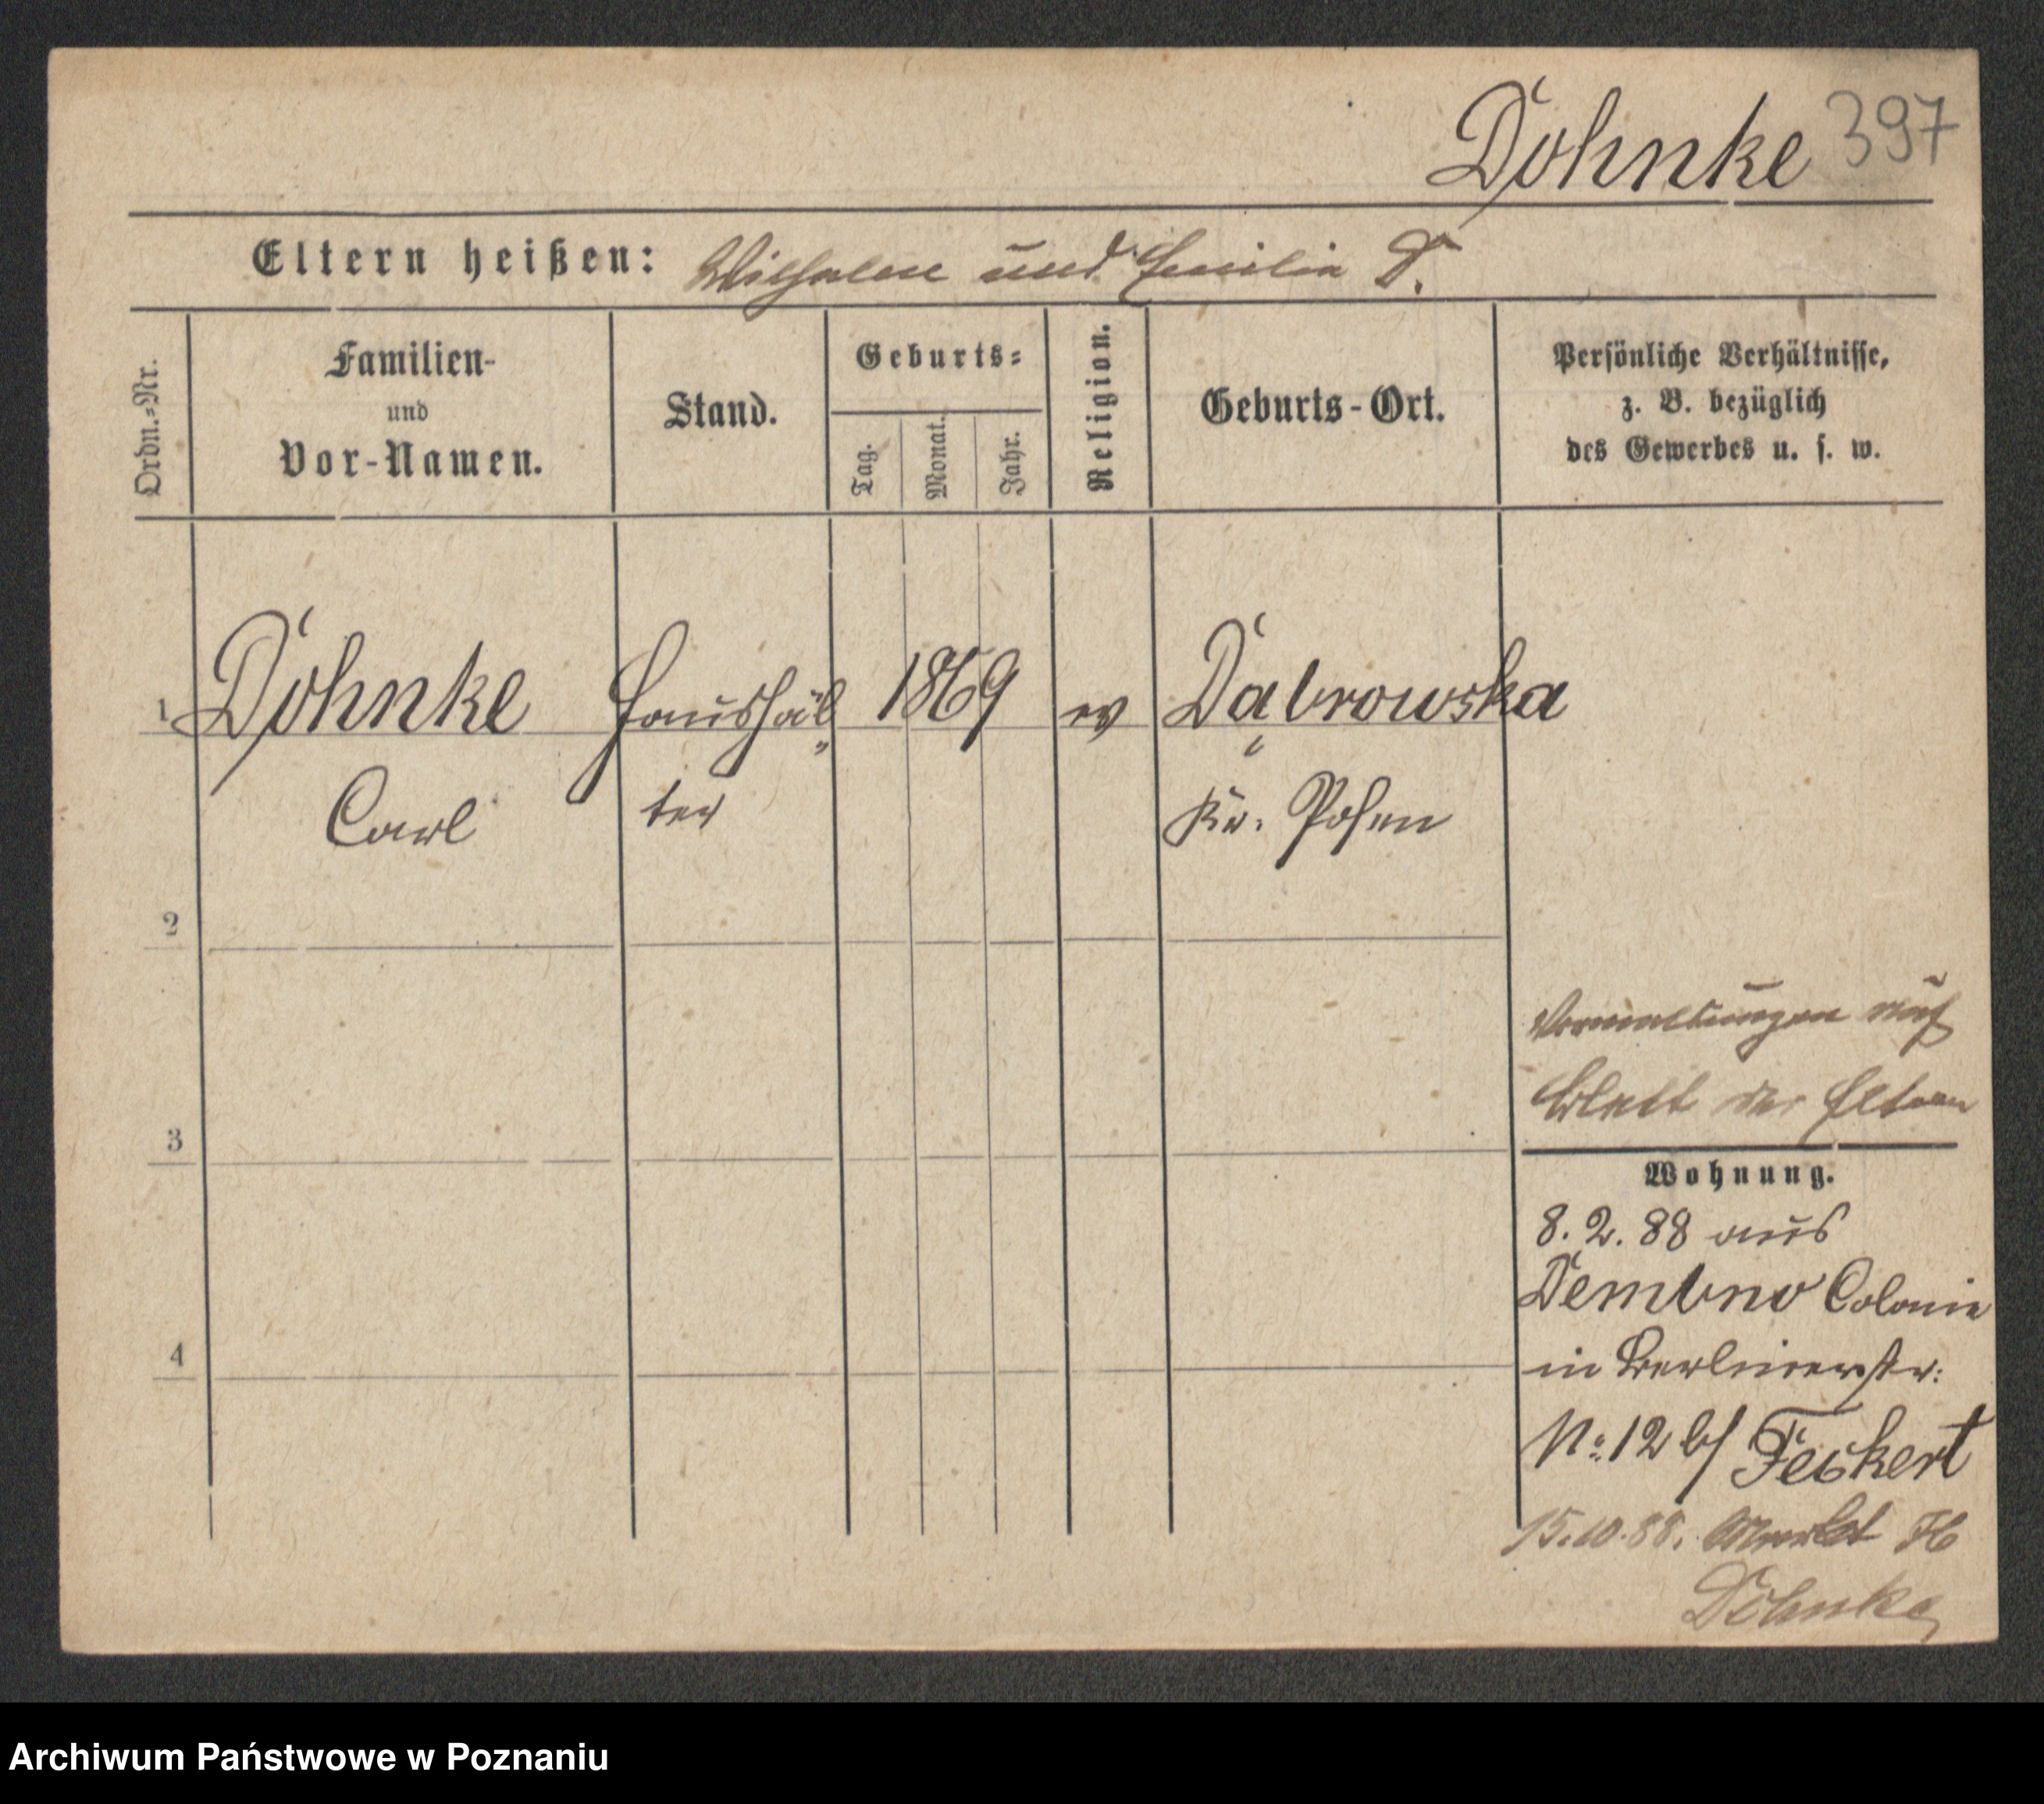 Dohnke 397
Eltern heißen: Wilhelm und Emilia D.
Ordn.-Nr.
Familien-
und
Vor-Namen.
Stand.
Geburts-
Tag.
Monat.
Jahr.
Religion.
Geburts-Ort.
Persönliche Verhältnisse,
z. B. bezüglich
des Gewerbes u. s. w.
1 Dohnke Haushäl 1869 ev Dąbrowska
Carl ter Kr. Posen
2
3
4
Vermerkungen auf
Blatt der Eltern
Wohnung.
8. 2. 88 aus
Dembno Colonie
in Berlinerstr:
No: 12 b/ Feckert
15.10.88. Markt 76
Dohnke
Archiwum Państwowe w Poznaniu